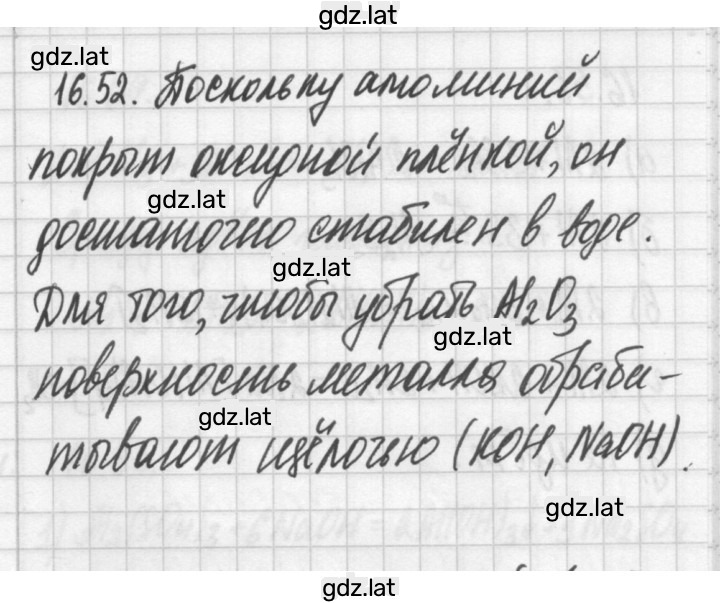 gdz.lat
gdz.lat
16.52. Поскольку алюминий
покрыт оксидной плёнкой, он
gdz.lat
достаточно стабилен в воде.
gdz.lat
Для того, чтобы убрать Al₂O₃
gdz.lat
поверхность металла обраба-
gdz.lat
тывают щёлочью (KOH, NaOH).
gdz.lat
gdz.lat